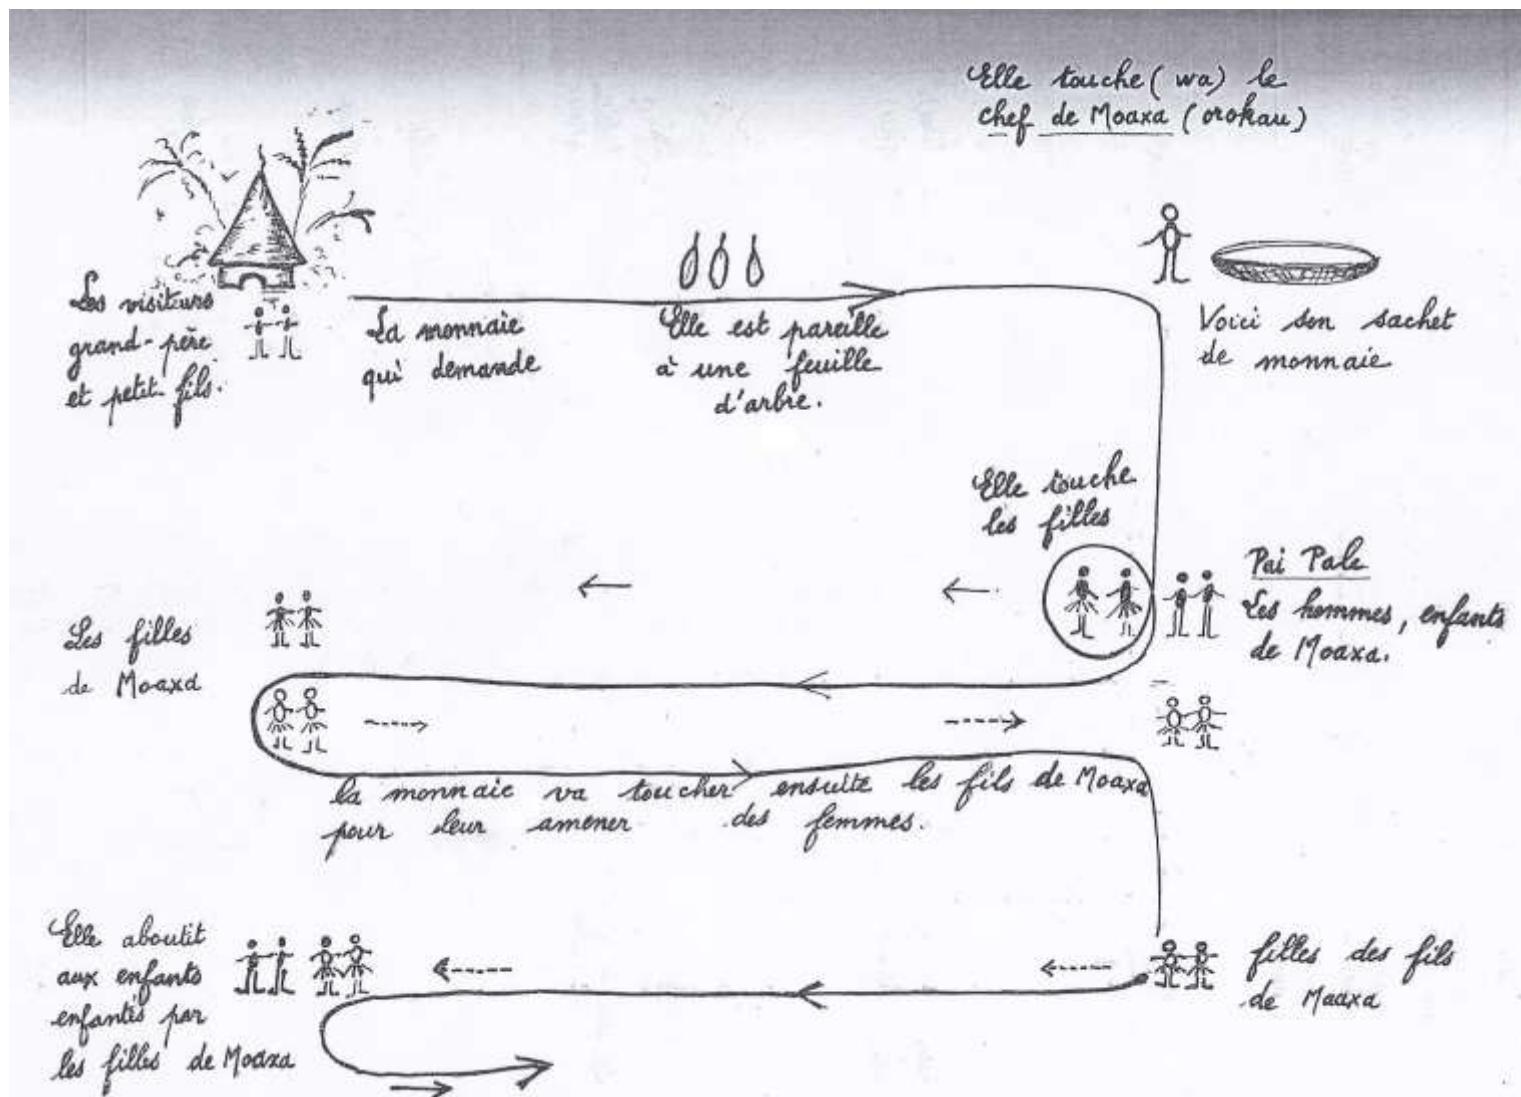 Elle touche (wa) le
chef de Moaxa (orokau)
Les visiteurs
grand-père
et petit fils.
La monnaie
qui demande
Elle est pareille
à une feuille
d'arbre.
Voici son sachet
de monnaie
Elle touche
les filles
Pai Pale
Les hommes, enfants
de Moaxa.
Les filles
de Moaxa
la monnaie va toucher ensuite les fils de Moaxa
pour leur amener des femmes.
Elle aboutit
aux enfants
enfantés par
les filles de Moaxa
filles des fils
de Maaxa